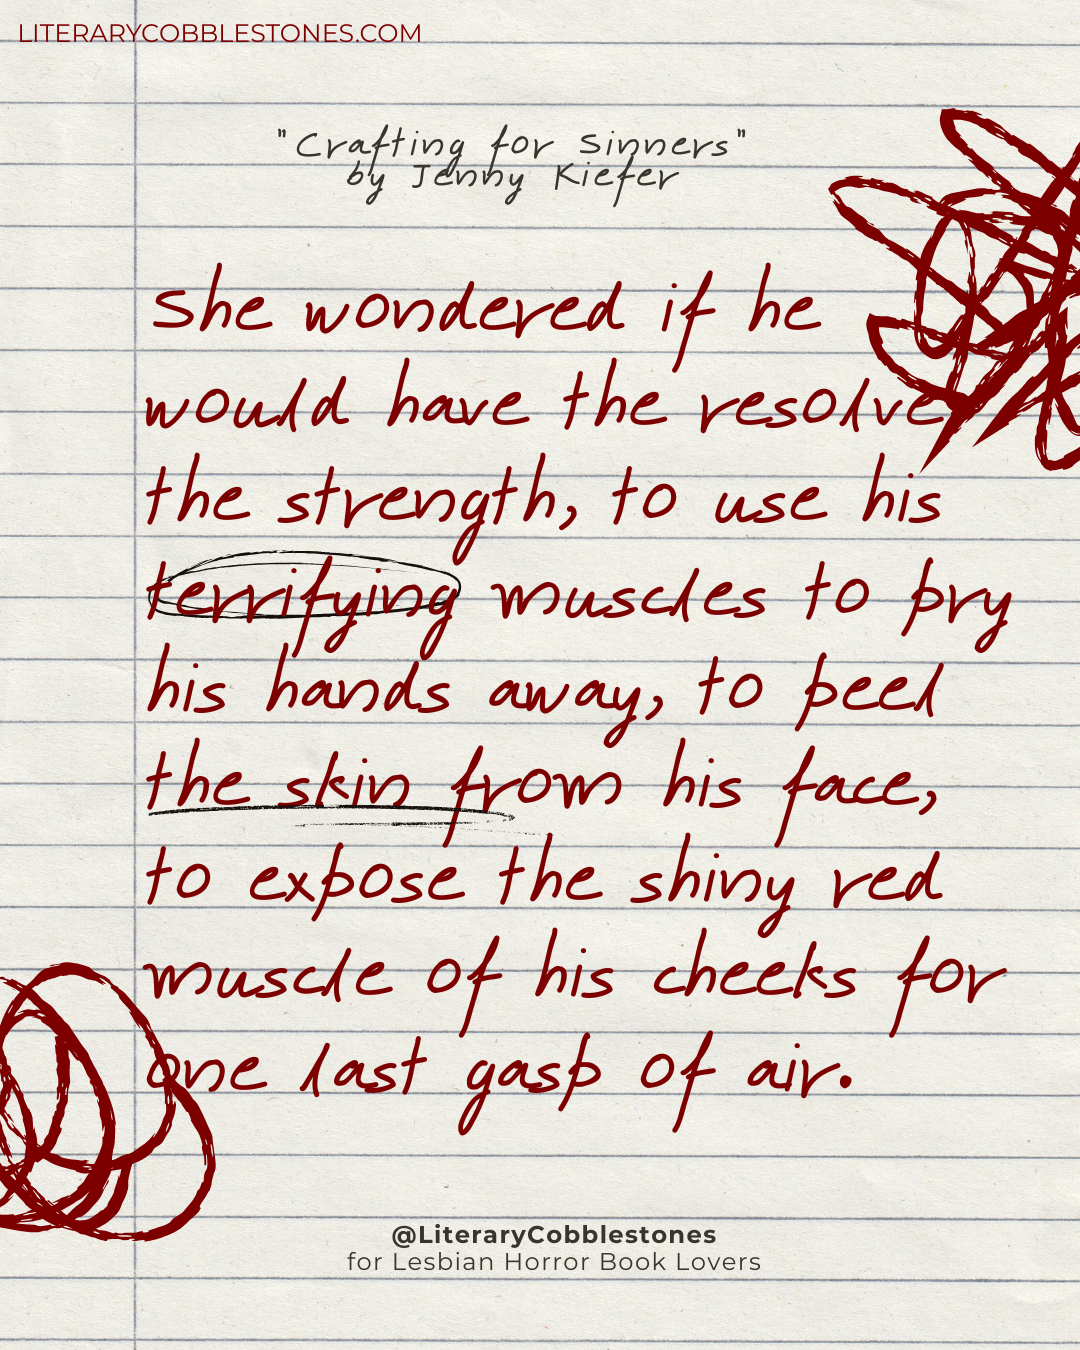 LITERARYCOBBLESTONES.COM
"Crafting for Sinners"
by Jenny Kiefer
She wondered if he
would have the resolve,
the strength, to use his
terrifying muscles to pry
his hands away, to peel
the skin from his face,
to expose the shiny red
muscle of his cheeks for
one last gasp of air.
@LiteraryCobblestones
for Lesbian Horror Book Lovers